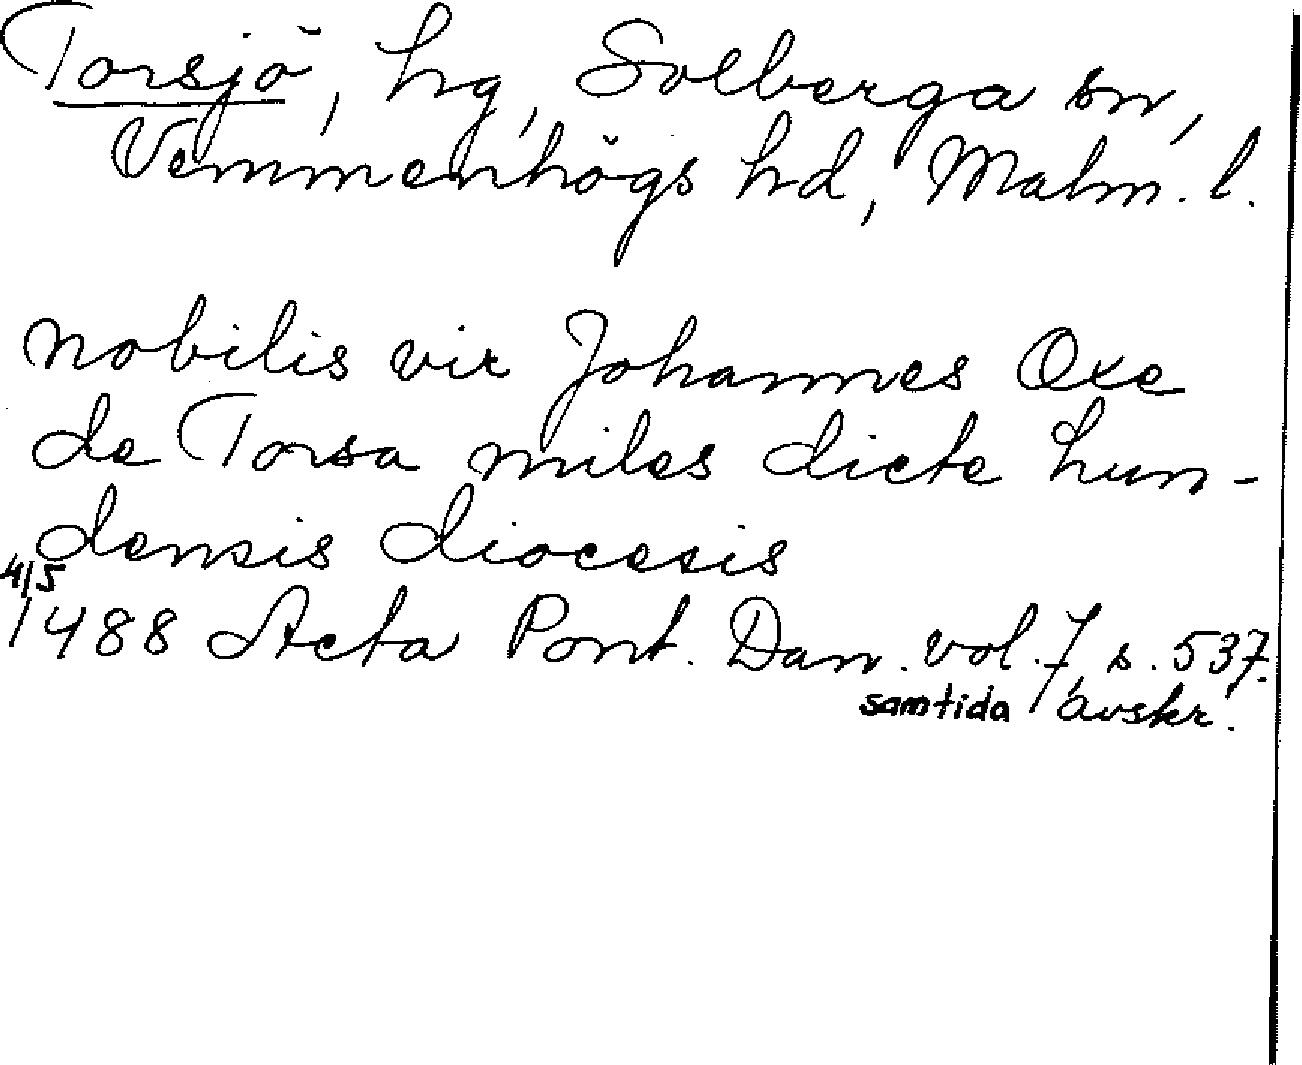 Torsjö, hg, Solberga sn,
Vemmenhögs hd, Malm. l.
nobilis vir Johannes Oxe
de Torsa miles dicte Lun-
densis diocesis
4/5
1488 Acta Pont. Dan. vol. 7, s. 537.
samtida avskr.